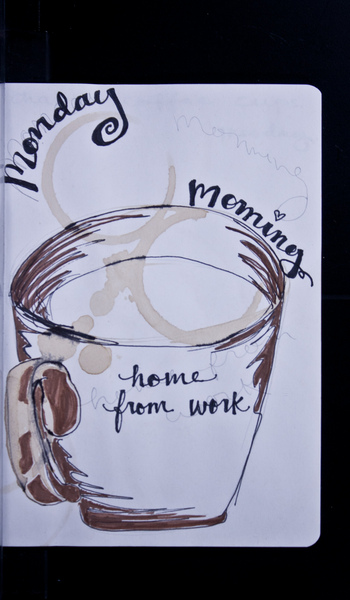 Monday
Morning
home
from work